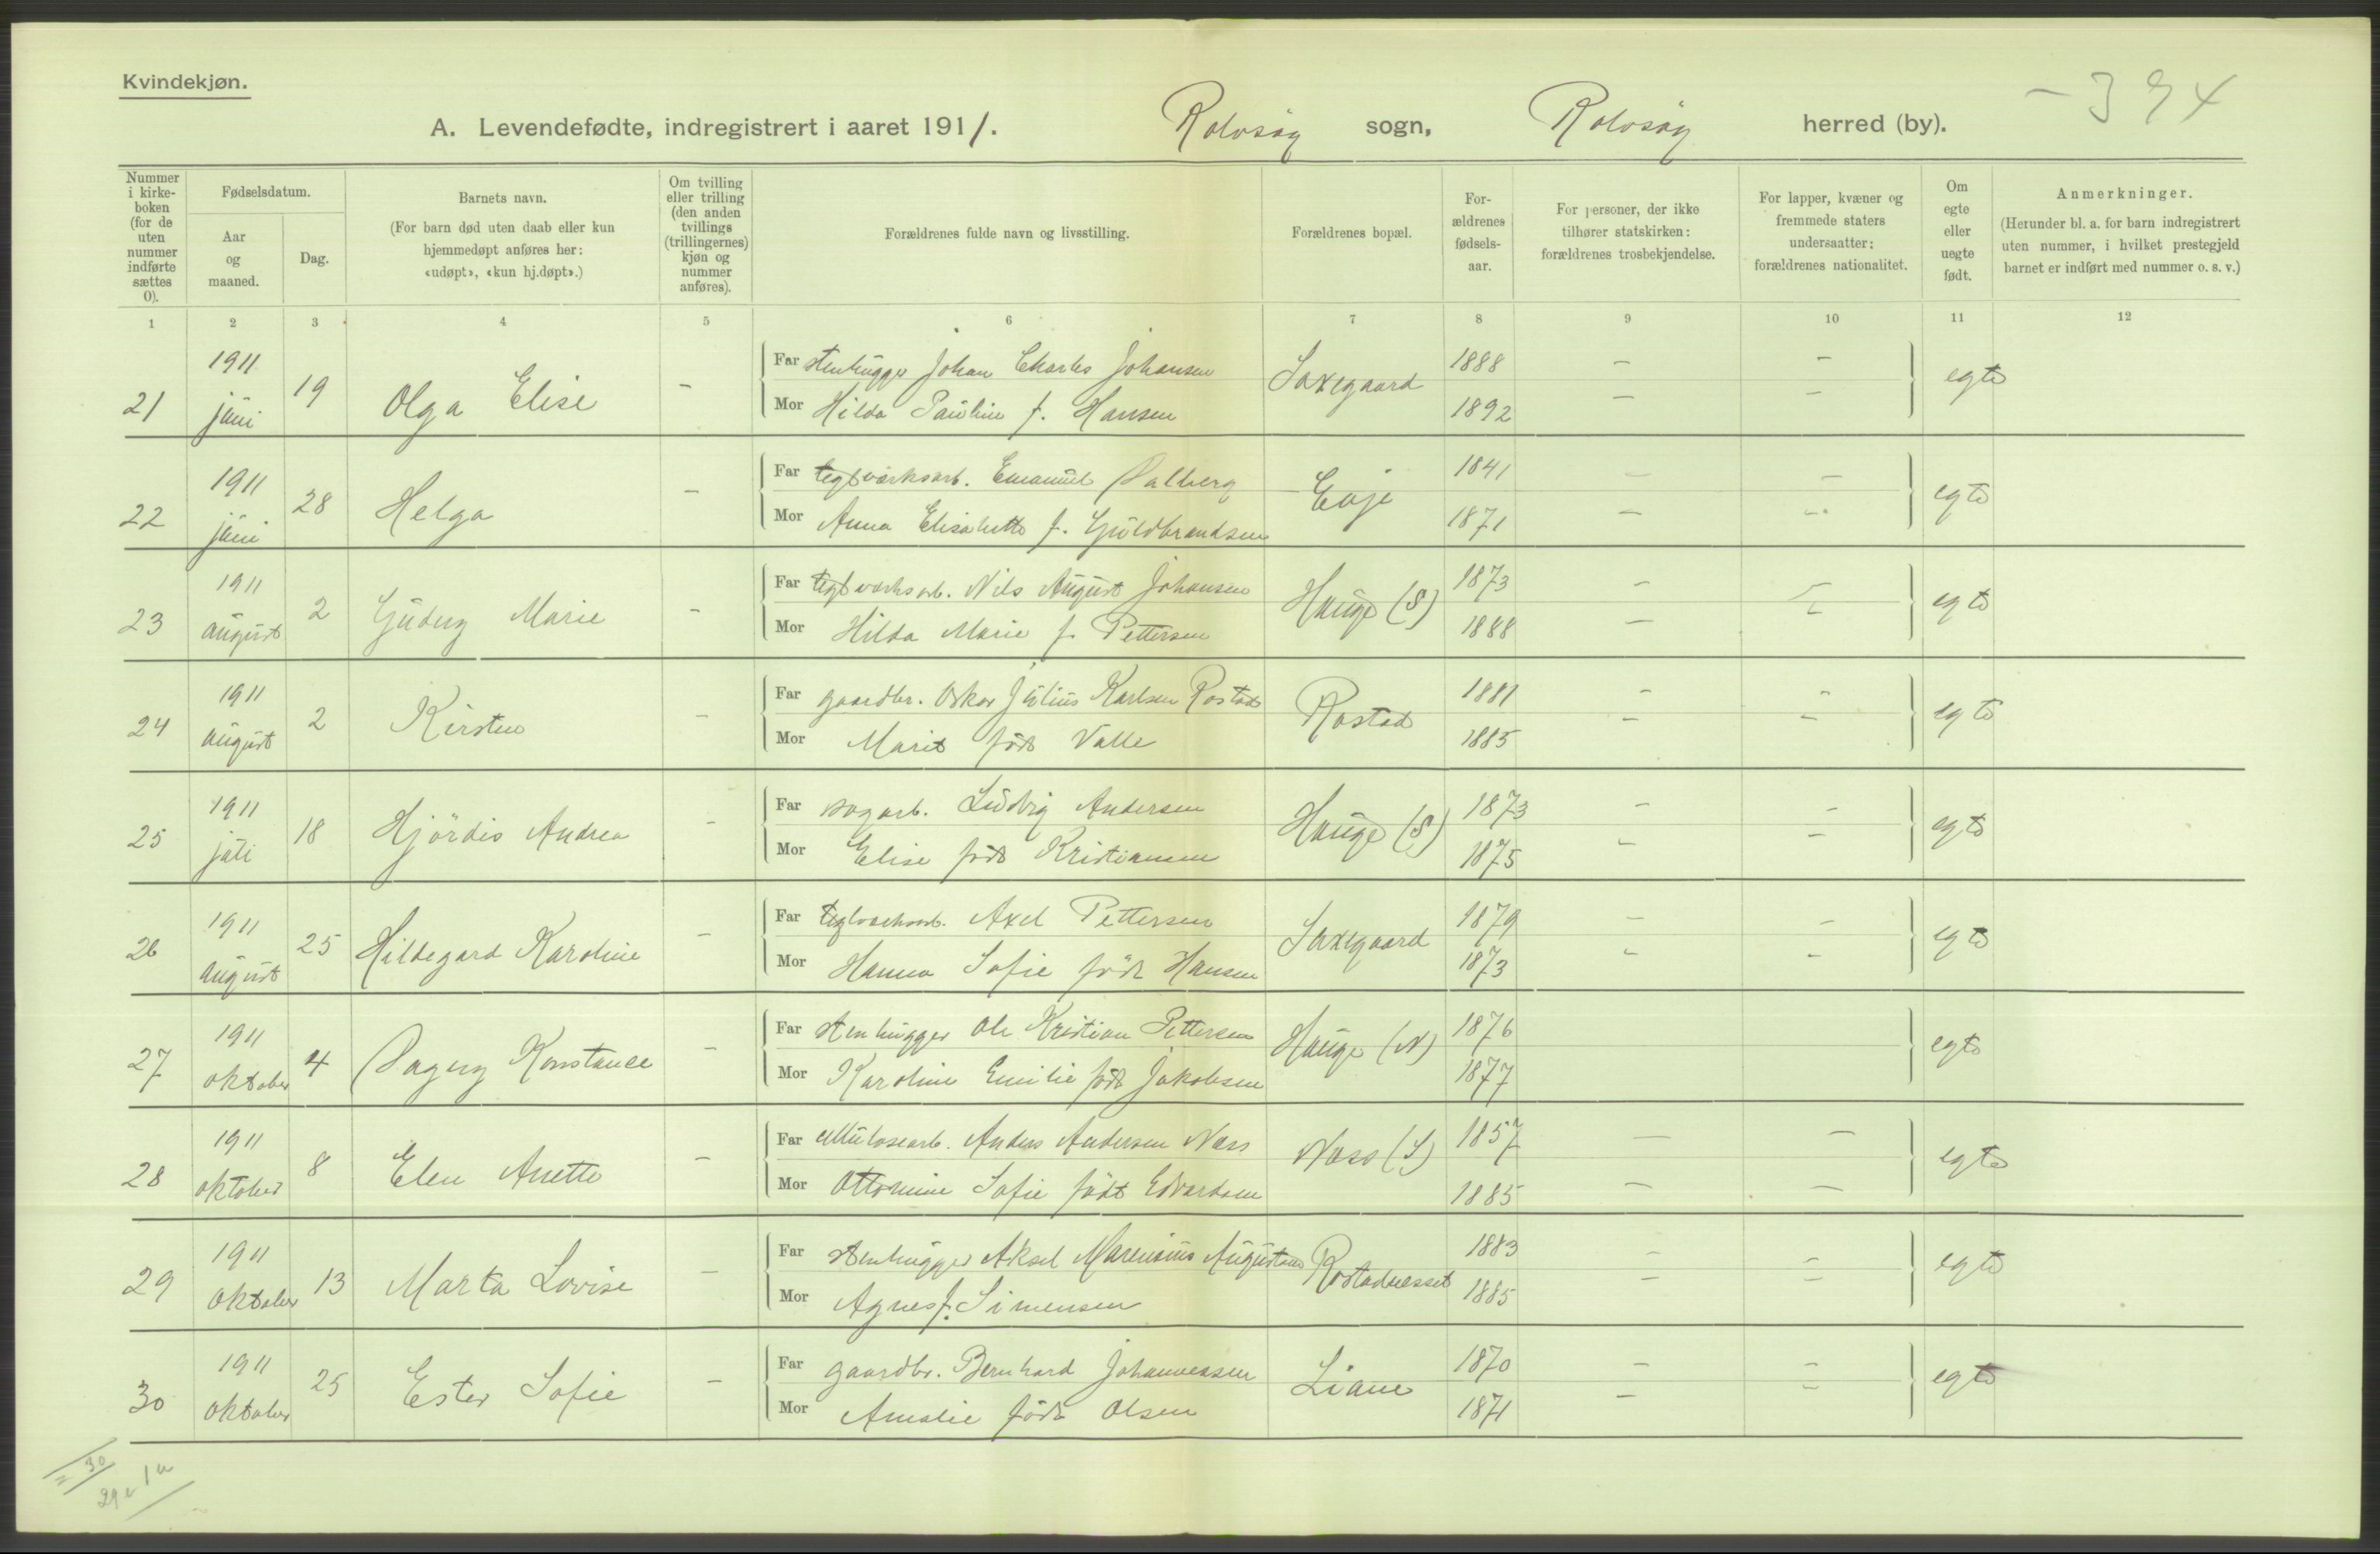 Kvindekjøn.
A. Levendefødte, indregistrert i aaret 1911. Rolvsøy sogn, Rolvsøy herred (by). - 394
Nummer i kirke-boken (for de uten nummer indførte sættes 0).
Fødselsdatum.
Aar og maaned.
Dag.
Barnets navn.
(For barn død uten daab eller kun hjemmedøpt anføres her: «udøpt», «kun hj.døpt».)
Om tvilling eller trilling (den anden tvillings (trillingernes) kjøn og nummer anføres).
Forældrenes fulde navn og livsstilling.
Forældrenes bopæl.
For-ældrenes fødsels-aar.
For personer, der ikke tilhører statskirken: forældrenes trosbekjendelse.
For lapper, kvæner og fremmede staters undersaatter: forældrenes nationalitet.
Om egte eller uegte født.
Anmerkninger.
(Herunder bl. a. for barn indregistrert uten nummer, i hvilket prestegjeld barnet er indført med nummer o. s. v.)
1 2 3 4 5 6 7 8 9 10 11 12
21 1911 juni 19 Olga Elise - Far stenhugger Johan Charles Johansen Saxegaard 1888 - - egte
Mor Hilda Pauline f. Hansen 1892 - -
22 1911 juni 28 Helga - Far teglverksarb. Emanuel Dalberg Evje 1841 - - egte
Mor Anna Elisabeth f. Guldbrandsen 1871 - -
23 1911 august 2 Gudny Marie - Far teglverksarb. Nils August Johansen Hauge (S) 1873 - - egte
Mor Hilda Marie f. Pettersen 1888 - -
24 1911 august 2 Kirsten - Far gaardbr. Oskar Julius Karlsen Rostad Rostad 1881 - - egte
Mor Marit født Valle 1885 - -
25 1911 juli 18 Hjördis Andrea - Far sagarb. Ludvig Andersen Hauge (S) 1873 - - egte
Mor Elise født Kristiansen 1875 - -
26 1911 august 25 Hildegard Karoline - Far teglverksarb. Axel Pettersen Saxegaard 1879 - - egte
Mor Hanna Sofie født Hansen 1873 - -
27 1911 oktober 4 Dagny Konstance - Far stenhugger Ole Kristian Pettersen Hauge (N) 1876 egte
Mor Karoline Emilie født Jakobsen 1877
28 1911 oktober 8 Elen Anette - Far cellulosearb. Anders Andersen Næss Næss (S) 1857 - - egte
Mor Ottomine Sofie født Edvardsen 1885 - -
29 1911 oktober 13 Marta Lovise - Far stenhugger Aksel Marensius Augustsen Rostadnesset 1883 - - egte
Mor Agnes f. Simensen 1885 - -
30 1911 oktober 25 Ester Sofie - Far gaardbr. Bernhard Johannessen Liane 1870 - - egte
Mor Amalie født Olsen 1871 - -
= 30
29 e 1 u